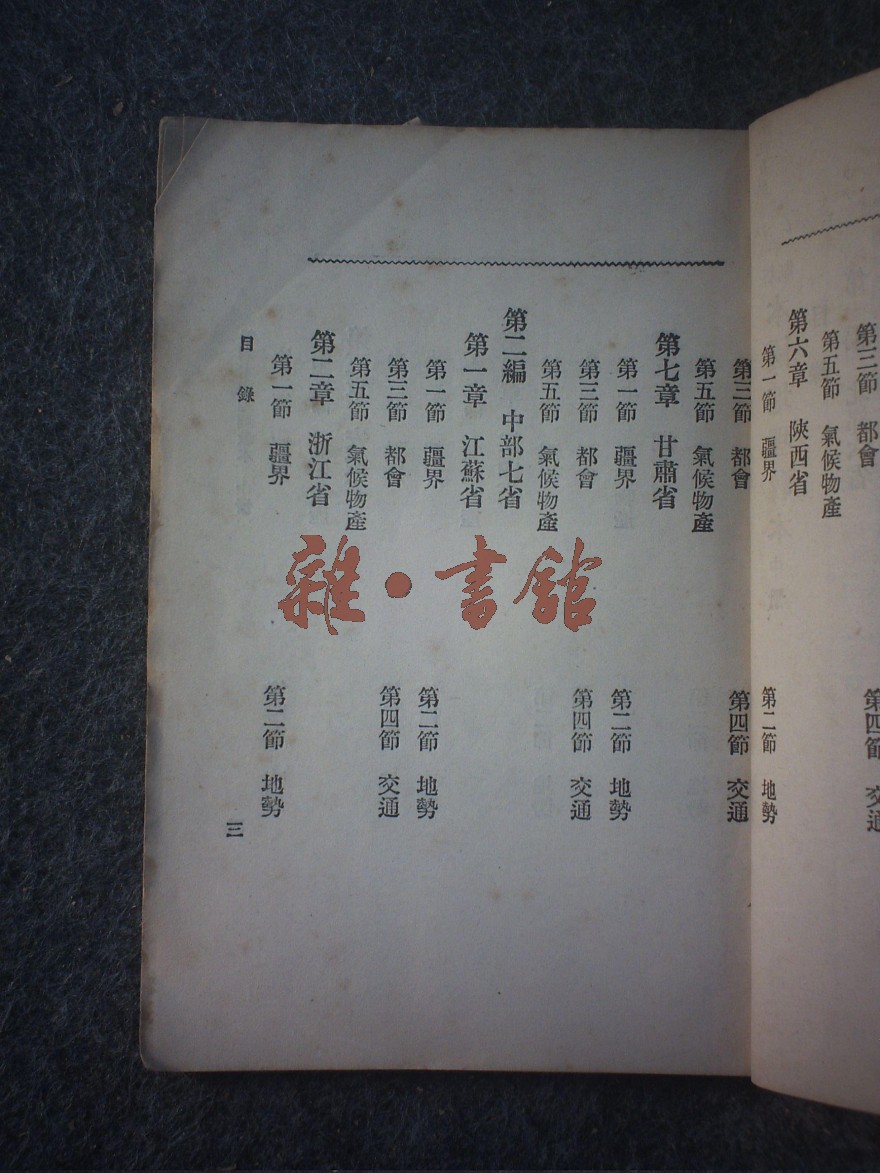 第三節 都會 第四節 交通
第五節 氣候物產
第六章 陝西省
第一節 疆界 第二節 地勢
第三節 都會 第四節 交通
第五節 氣候物產
第七章 甘肅省
第一節 疆界 第二節 地勢
第三節 都會 第四節 交通
第五節 氣候物產
第二編 中部七省
第一章 江蘇省
第一節 疆界 第二節 地勢
第三節 都會 第四節 交通
第五節 氣候物產
第二章 浙江省
第一節 疆界 第二節 地勢
目錄 三
雜·書館